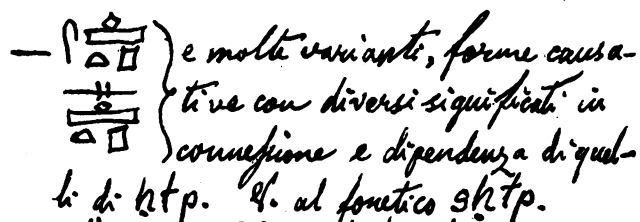 — 𓋴𓊵𓏏𓊪 ) e molte varianti, forme causa-
𓊃𓊵𓏏𓊪 tive con diversi significati in
conneſsione e dipendenza di quel-
li di ḥtp. V. al fonetico sḥtp.